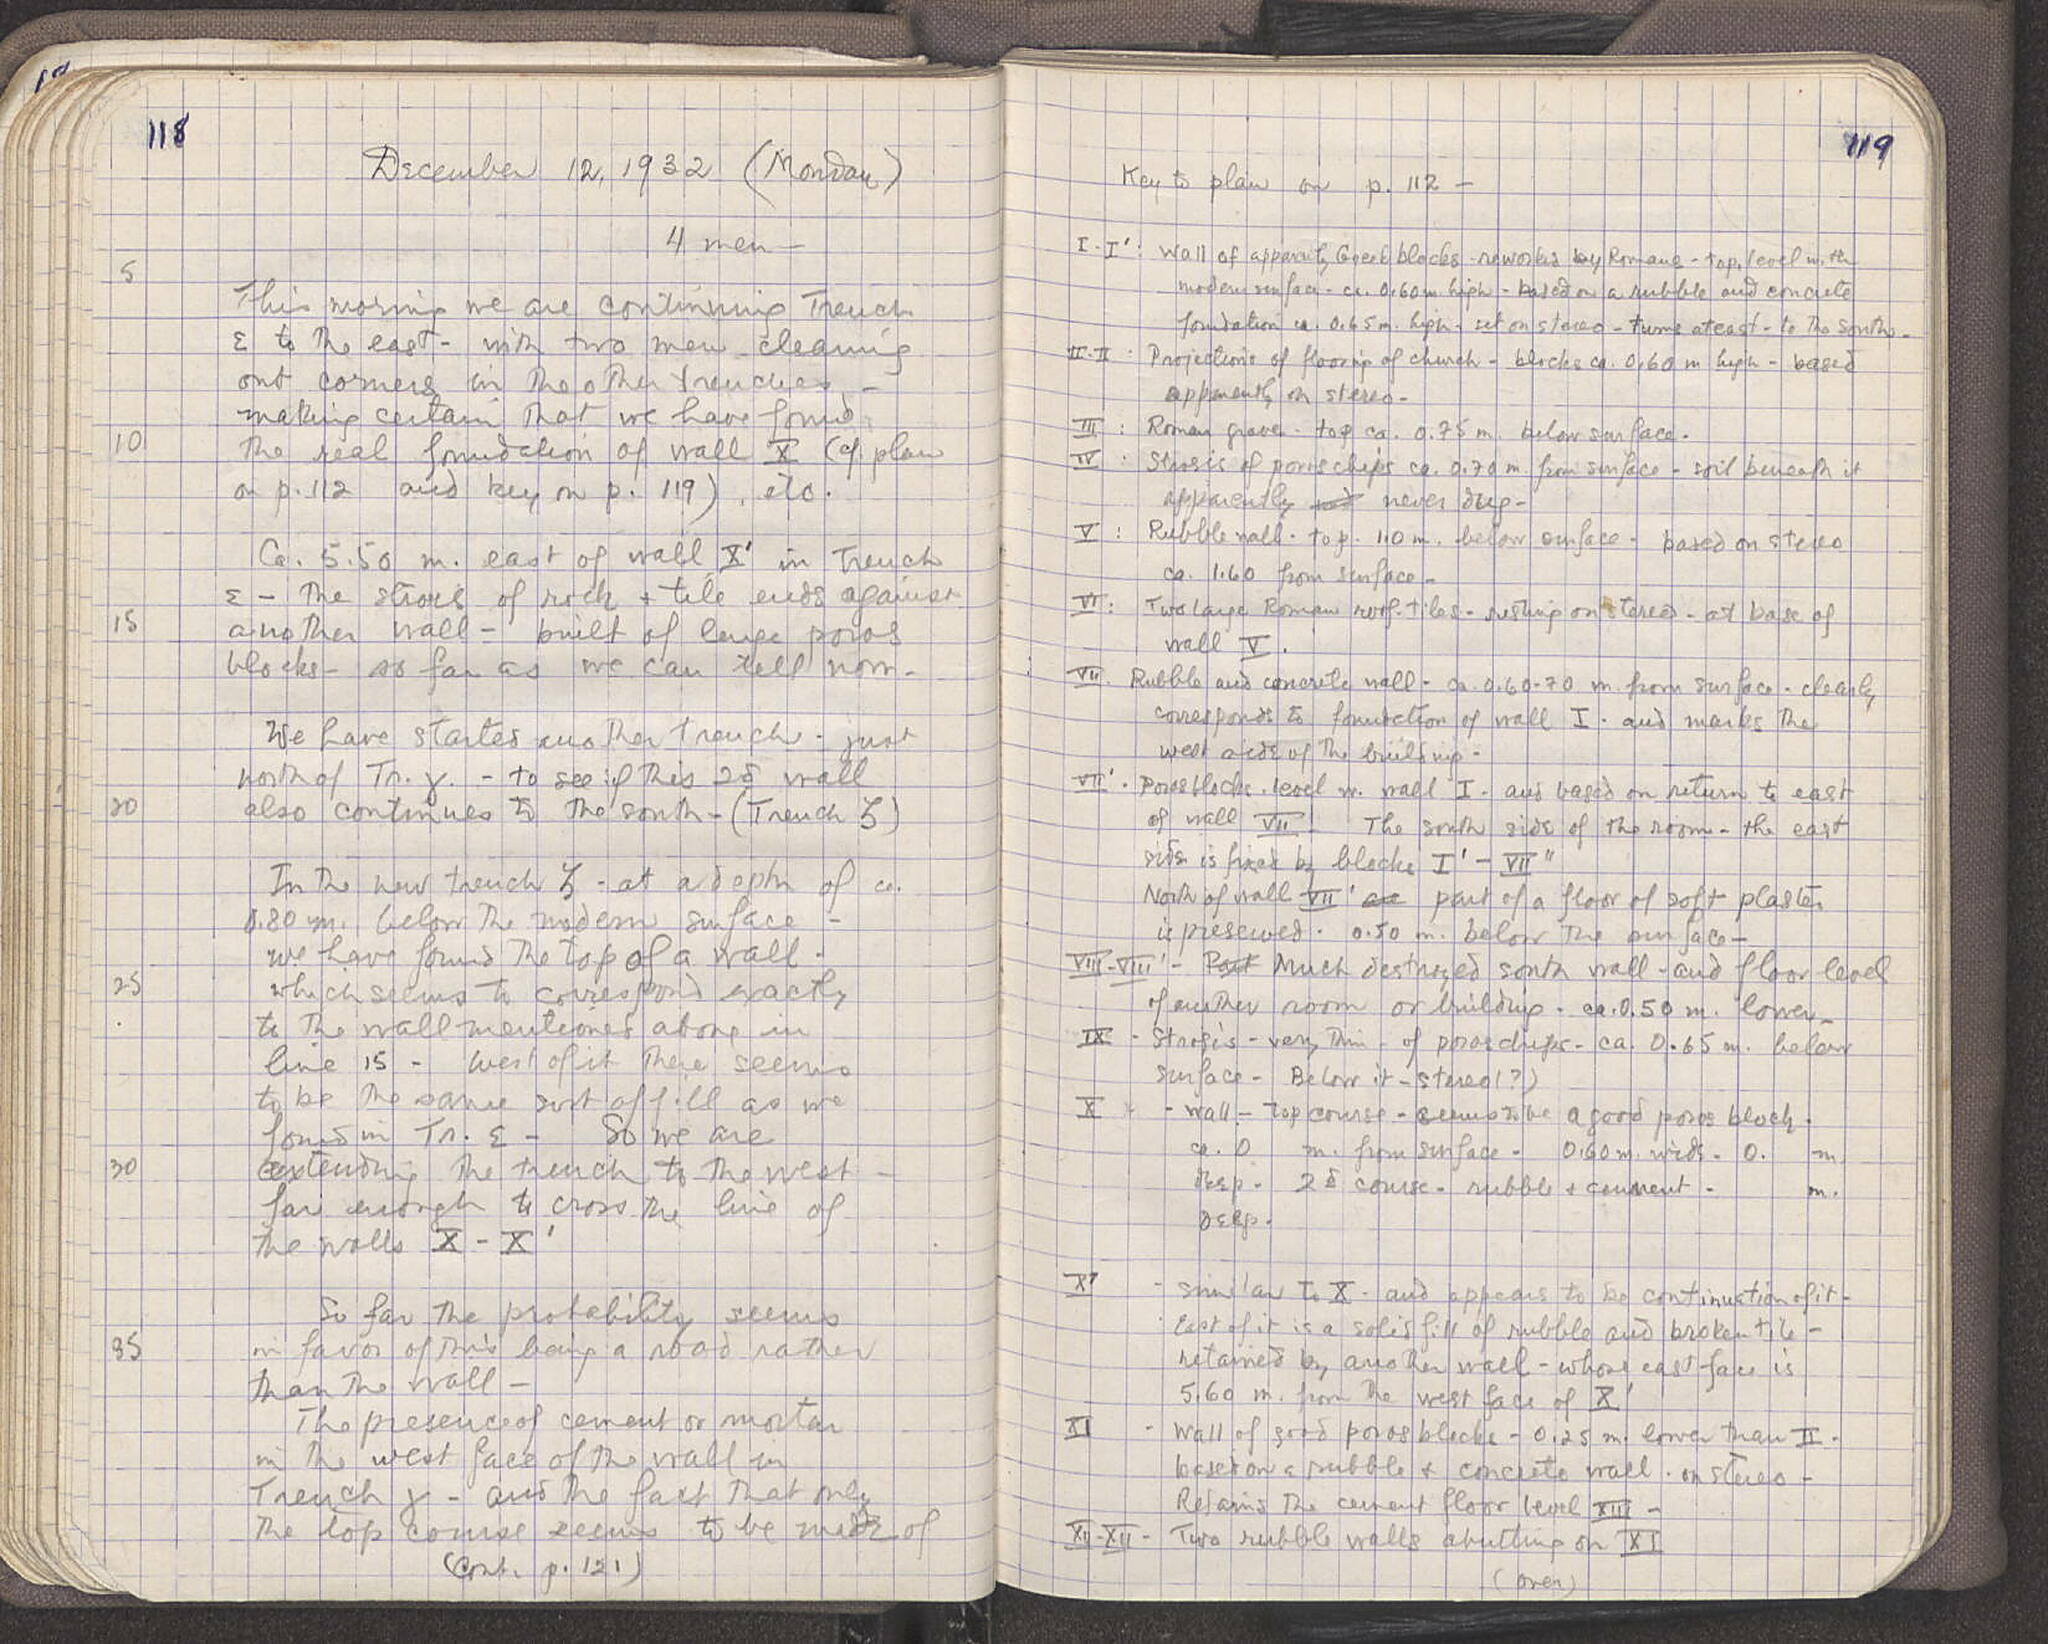 118
December 12, 1932 (Monday)
4 men —
5
This morning we are continuing Trench
ε to the east - with two men cleaning
out corners in the other trenches —
making certain that we have found
10 the real foundation of wall X (cf. plan
on p. 112 and key on p. 119), etc.
Ca. 5.50 m. east of wall X' in Trench
ε — the strosis of rock + tile ends against
15 another wall — built of large poros
blocks — so far as we can tell now —
We have started another trench - just
north of Tr. γ. - to see if this 2d wall
20 also continues to the south - (Trench ζ)
In the new trench ζ - at a depth of ca.
0.80 m. below the modern surface —
we have found the top of a wall -
25 which seems to correspond exactly
to the wall mentioned above in
line 15 - West of it there seems
to be the same sort of fill as we
found in Tr. ε - So we are
30 extending the trench to the west —
far enough to cross the line of
the walls X - X'
So far the probability seems
35 in favor of this being a road rather
than the wall —
The presence of cement or mortar
in the west face of the wall in
Trench γ - and the fact that only
the top course seems to be made of
(Cont. p. 121)
119
Key to plan on p. 112 —
I-I' : Wall of apparently Greek blocks - reworked by Romans - top, level with
modern surface - ca. 0.60 m. high - based on a rubble and concrete
foundation ca. 0.65 m. high - set on stereo - turns at east - to the south -
II-II : Projections of flooring of church - blocks ca. 0.60 m high - based
apparently on stereo -
III : Roman grave - top ca. 0.75 m. below surface.
IV : Strosis of poros chips ca. 0.70 m. from surface - soil beneath it
apparently never dug -
V : Rubble wall - top - 1.10 m. below surface - based on stereo
ca. 1.60 from surface -
VI : Two large Roman roof-tiles - resting on stereo - at base of
wall V.
VII. Rubble and concrete wall - ca. 0.60-70 m. from surface - clearly
corresponds to foundation of wall I - and marks the
west side of the building -
VII' - Poros blocks - level w. wall I - and based on return to east
of wall VII - The south side of the room - the east
side is fixed by blocks I' - VII"
North of wall VII' part of a floor of soft plaster
is preserved - 0.50 m. below the surface —
VIII-VIII' - Much destroyed south wall - and floor level
of another room or building - ca. 0.50 m. lower -
IX - Strosis - very thin - of poros chips - ca. 0.65 m. below
surface - Below it - stereo(?)
X - wall - top course - seems to be a good poros block -
ca. 0 m. from surface - 0.60 m. wide - 0. m.
deep - 2d course - rubble + cement - m.
deep.
X' - similar to X - and appears to be continuation of it -
East of it is a solid fill of rubble and broken tile -
retained by another wall - whose east face is
5.60 m. from the west face of X'
XI - Wall of good poros blocks - 0.25 m. lower than II -
based on a rubble + concrete wall - on stereo -
Retains the cement floor level XIII -
XII-XII - Two rubble walls abutting on XI
(over)